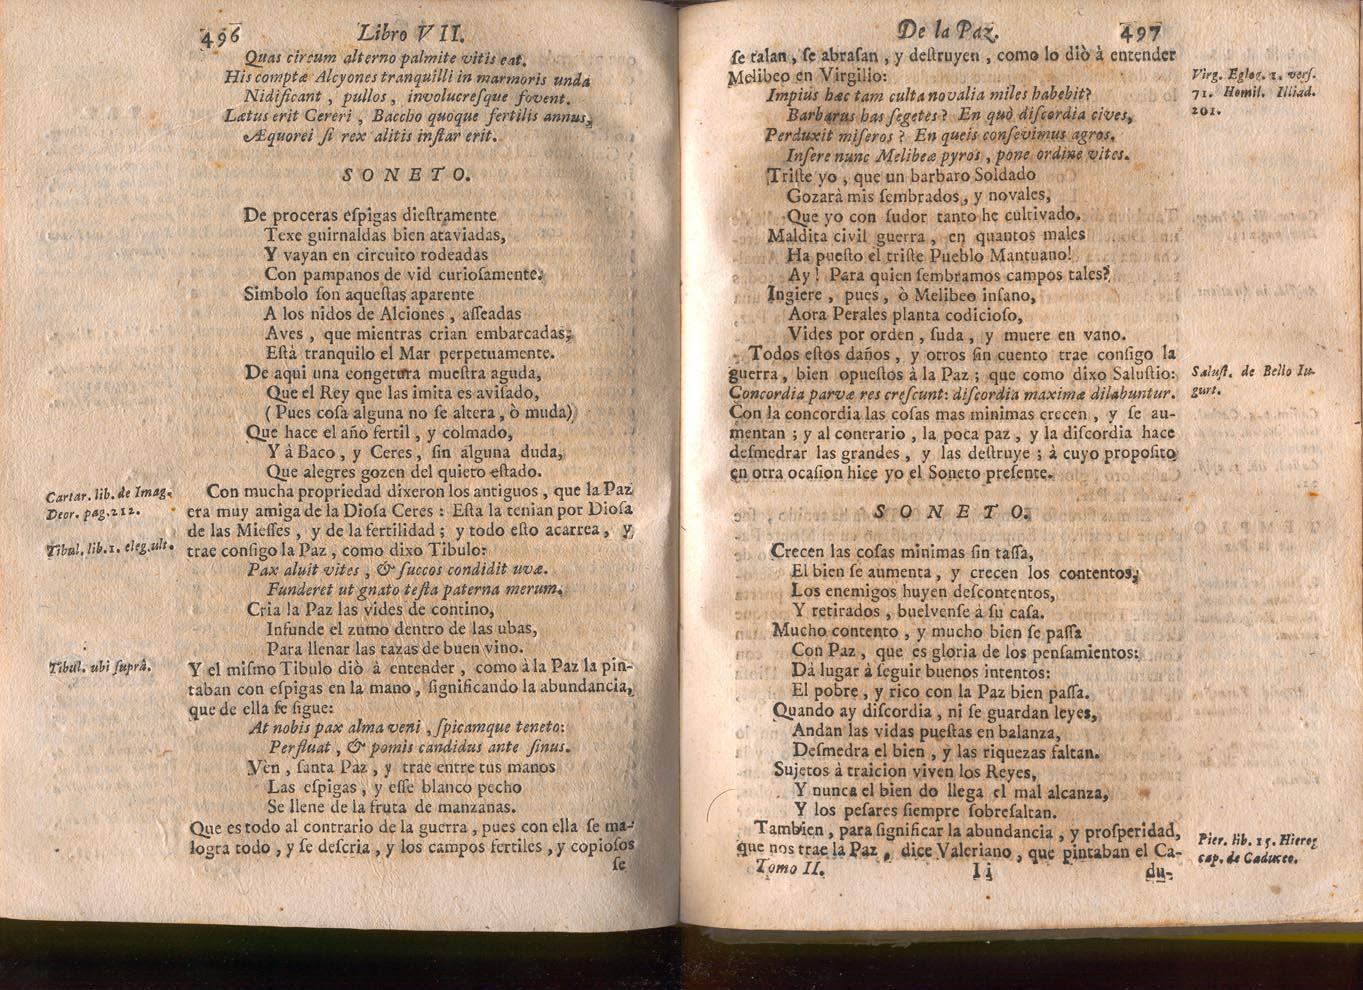 496 Libro VII.
Quas circum alterno palmite vitis eat.
His comptæ Alcyones tranquilli in marmoris unda
Nidificant, pullos, involucresque fovent.
Lætus erit Cereri, Baccho quoque fertilis annus,
Æquorei si rex alitis instar erit.
SONETO.
De proceras eſpigas dieſtramente
Texe guirnaldas bien ataviadas,
Y vayan en circuito rodeadas
Con pampanos de vid curioſamente.
Simbolo ſon aqueſtas aparente
A los nidos de Alciones, aſſeadas
Aves, que mientras crian embarcadas,
Eſtà tranquilo el Mar perpetuamente.
De aqui una congetura mueſtra aguda,
Que el Rey que las imita es aviſado,
(Pues coſa alguna no ſe altera, ò muda)
Que hace el año fertil, y colmado,
Y à Baco, y Ceres, ſin alguna duda,
Que alegres gozen del quieto eſtado.
Con mucha propriedad dixeron los antiguos, que la Paz
era muy amiga de la Dioſa Ceres: Eſta la tenian por Dioſa
de las Mieſſes, y de la fertilidad; y todo eſto acarrea, y
trae conſigo la Paz, como dixo Tibulo:
Pax aluit vites, & ſuccos condidit uvæ.
Funderet ut gnato teſta paterna merum.
Cria la Paz las vides de contino,
Infunde el zumo dentro de las ubas,
Para llenar las tazas de buen vino.
Y el miſmo Tibulo diò à entender, como à la Paz la pin-
taban con eſpigas en la mano, ſignificando la abundancia,
que de ella ſe ſigue:
At nobis pax alma veni, ſpicamque teneto:
Perfluat, & pomis candidus ante ſinus.
Ven, ſanta Paz, y trae entre tus manos
Las eſpigas, y eſſe blanco pecho
Se llene de la fruta de manzanas.
Que es todo al contrario de la guerra, pues con ella ſe ma-
logra todo, y ſe deſcria, y los campos fertiles, y copioſos
ſe
Cartar. lib. de Imag.
Deor. pag. 212.
Tibul. lib. 1. eleg. ult.
Tibul. ubi ſuprâ.
De la Paz. 497
ſe talan, ſe abraſan, y deſtruyen, como lo diò à entender
Melibeo en Virgilio:
Impius hæc tam culta novalia miles habebit?
Barbarus has ſegetes? En quò diſcordia cives,
Perduxit miſeros? En queis conſevimus agros.
Inſere nunc Melibeæ pyros, pone ordine vites.
Triſte yo, que un barbaro Soldado
Gozarà mis ſembrados, y novales,
Que yo con ſudor tanto he cultivado.
Maldita civil guerra, en quantos males
Ha pueſto el triſte Pueblo Mantuano!
Ay! Para quien ſembramos campos tales?
Ingiere, pues, ò Melibeo inſano,
Aora Perales planta codicioſo,
Vides por orden, ſuda, y muere en vano.
Todos eſtos daños, y otros ſin cuento trae conſigo la
guerra, bien opueſtos à la Paz; que como dixo Saluſtio:
Concordia parvæ res creſcunt: diſcordia maximæ dilabuntur.
Con la concordia las coſas mas minimas crecen, y ſe au-
mentan; y al contrario, la poca paz, y la diſcordia hace
deſmedrar las grandes, y las deſtruye; à cuyo propoſito
en otra ocaſion hice yo el Soneto preſente.
SONETO.
Crecen las coſas minimas ſin taſſa,
El bien ſe aumenta, y crecen los contentos,
Los enemigos huyen deſcontentos,
Y retirados, buelvenſe à ſu caſa.
Mucho contento, y mucho bien ſe paſſa
Con Paz, que es gloria de los penſamientos:
Dà lugar à ſeguir buenos intentos:
El pobre, y rico con la Paz bien paſſa.
Quando ay diſcordia, ni ſe guardan leyes,
Andan las vidas pueſtas en balanza,
Deſmedra el bien, y las riquezas faltan.
Sujetos à traicion viven los Reyes,
Y nunca el bien do llega el mal alcanza,
Y los peſares ſiempre ſobreſaltan.
Tambien, para ſignificar la abundancia, y proſperidad,
que nos trae la Paz, dice Valeriano, que pintaban el Ca-
Tomo II. Ii du-
Virg. Eglog. 1. verſ.
71. Homil. Illiad.
201.
Saluſt. de Bello Iu-
gurt.
Pier. lib. 15. Hierog
cap. de Caduceo.